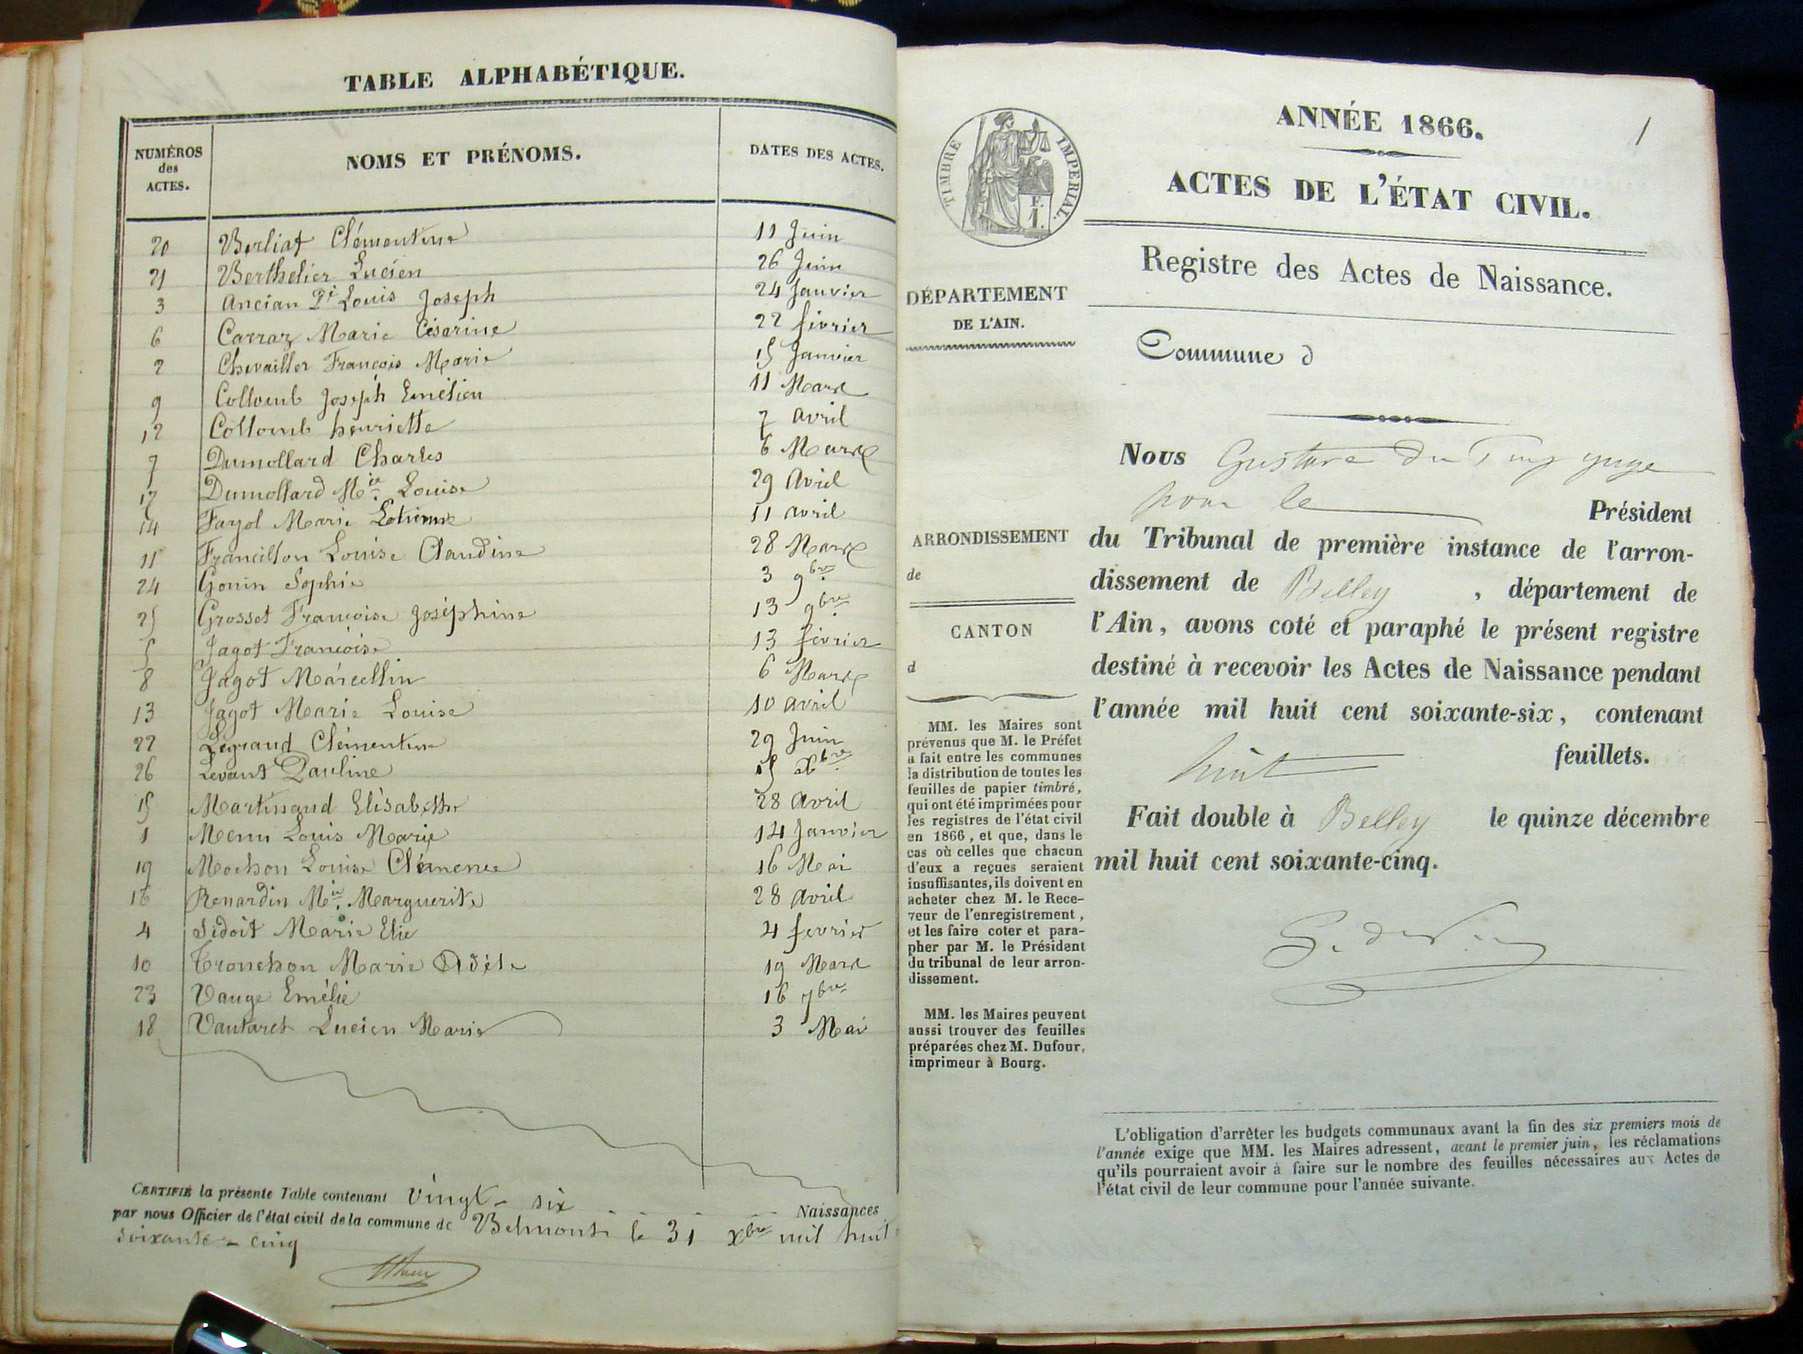 TABLE ALPHABÉTIQUE.
NUMÉROS des ACTES. NOMS ET PRÉNOMS. DATES DES ACTES.
20 Berliat Clémentine 11 Juin
21 Berthelier Lucien 26 Juin
3 Ancian Louis Joseph 24 Janvier
6 Carraz Marie Césarine 22 février
2 Chevaillier François Marie 15 Janvier
9 Collomb Joseph Emélien 11 Mars
12 Collomb henriette 7 avril
7 Dumollard Charles 6 Mars
17 Dumollard Mie. Louise 29 Avril
14 Fayol Marie 11 avril
11 Francillon Louise Claudine 28 Mars
24 Gonin Sophie 3 9bre
25 Grosset Françoise Joséphine 13 9bre
5 Jagot Françoise 13 février
8 Jagot Marcellin 6 Mars
13 Jagot Marie Louise 10 avril
22 Legrand Clémentine 29 Juin
26 Levant Pauline 15 xbre
15 Martinand Elisabeth 28 avril
1 Menu Louis Marie 14 Janvier
19 Mochon Louise Clémence 16 Mai
16 Renardin Mie. Marguerite 28 avril
4 Sidoit Marie Elie 4 fevrier
10 Tronchon Marie Adèle 19 Mars
23 Vauge Emélie 16 7bre
18 Vautaret Lucien Marie 3 Mai
CERTIFIÉ la présente Table contenant vingt-six Naissances
par nous Officier de l'état civil de la commune de Belmont le 31 xbre mil huit
soixante-cinq
1
ANNÉE 1866.
TIMBRE IMPÉRIAL.
F. 1.
ACTES DE L'ÉTAT CIVIL.
Registre des Actes de Naissance.
DÉPARTEMENT
DE L'AIN.
Commune d
ARRONDISSEMENT
de
CANTON
d
MM. les Maires sont
prévenus que M. le Préfet
a fait entre les communes
la distribution de toutes les
feuilles de papier timbré,
qui ont été imprimées pour
les registres de l'état civil
en 1866, et que, dans le
cas où celles que chacun
d'eux a reçues seraient
insuffisantes, ils doivent en
acheter chez M. le Rece-
veur de l'enregistrement,
et les faire coter et para-
pher par M. le Président
du tribunal de leur arron-
dissement.
MM. les Maires peuvent
aussi trouver des feuilles
préparées chez M. Dufour,
imprimeur à Bourg.
Nous Gustave du juge
pour le Président
du Tribunal de première instance de l'arron-
dissement de Belley, département de
l'Ain, avons coté et paraphé le présent registre
destiné à recevoir les Actes de Naissance pendant
l'année mil huit cent soixante-six, contenant
huit feuillets.
Fait double à Belley le quinze décembre
mil huit cent soixante-cinq.
L'obligation d'arrêter les budgets communaux avant la fin des six premiers mois de
l'année exige que MM. les Maires adressent, avant le premier juin, les réclamations
qu'ils pourraient avoir à faire sur le nombre des feuilles nécessaires aux Actes de
l'état civil de leur commune pour l'année suivante.